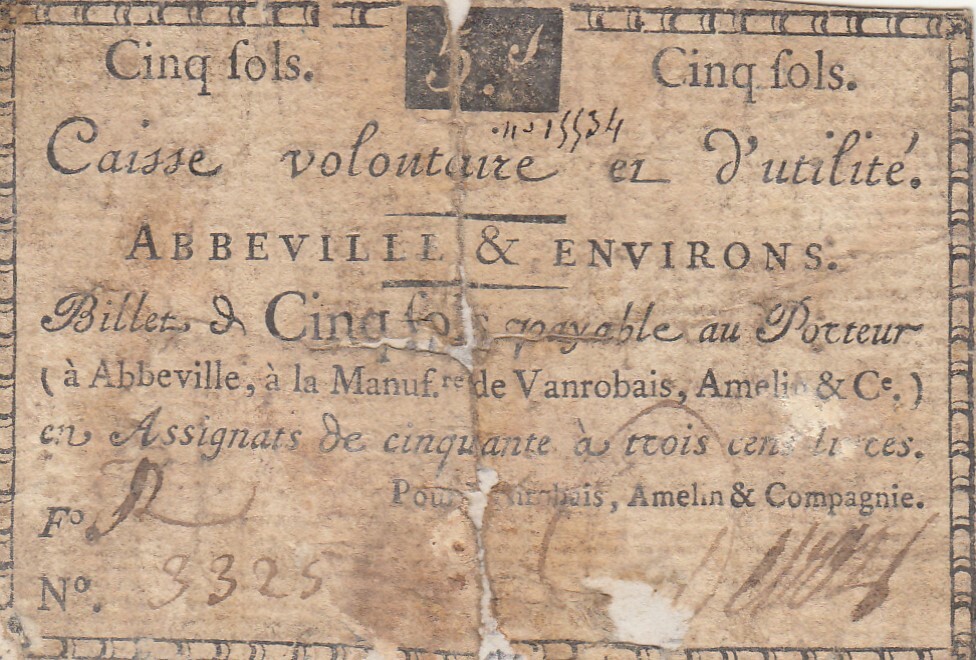 Cinq ſols. 5. ſ Cinq ſols.
n.º 15534
Caisse volontaire et d'utilité.
ABBEVILLE & ENVIRONS.
Billet de Cinq ſols payable au Porteur
( à Abbeville, à la Manuf.re de Vanrobais, Amelin & Ce. )
en Assignats de cinquante à trois cens livres.
Pour Vanrobais, Amelin & Compagnie.
Fo.
No. 3325